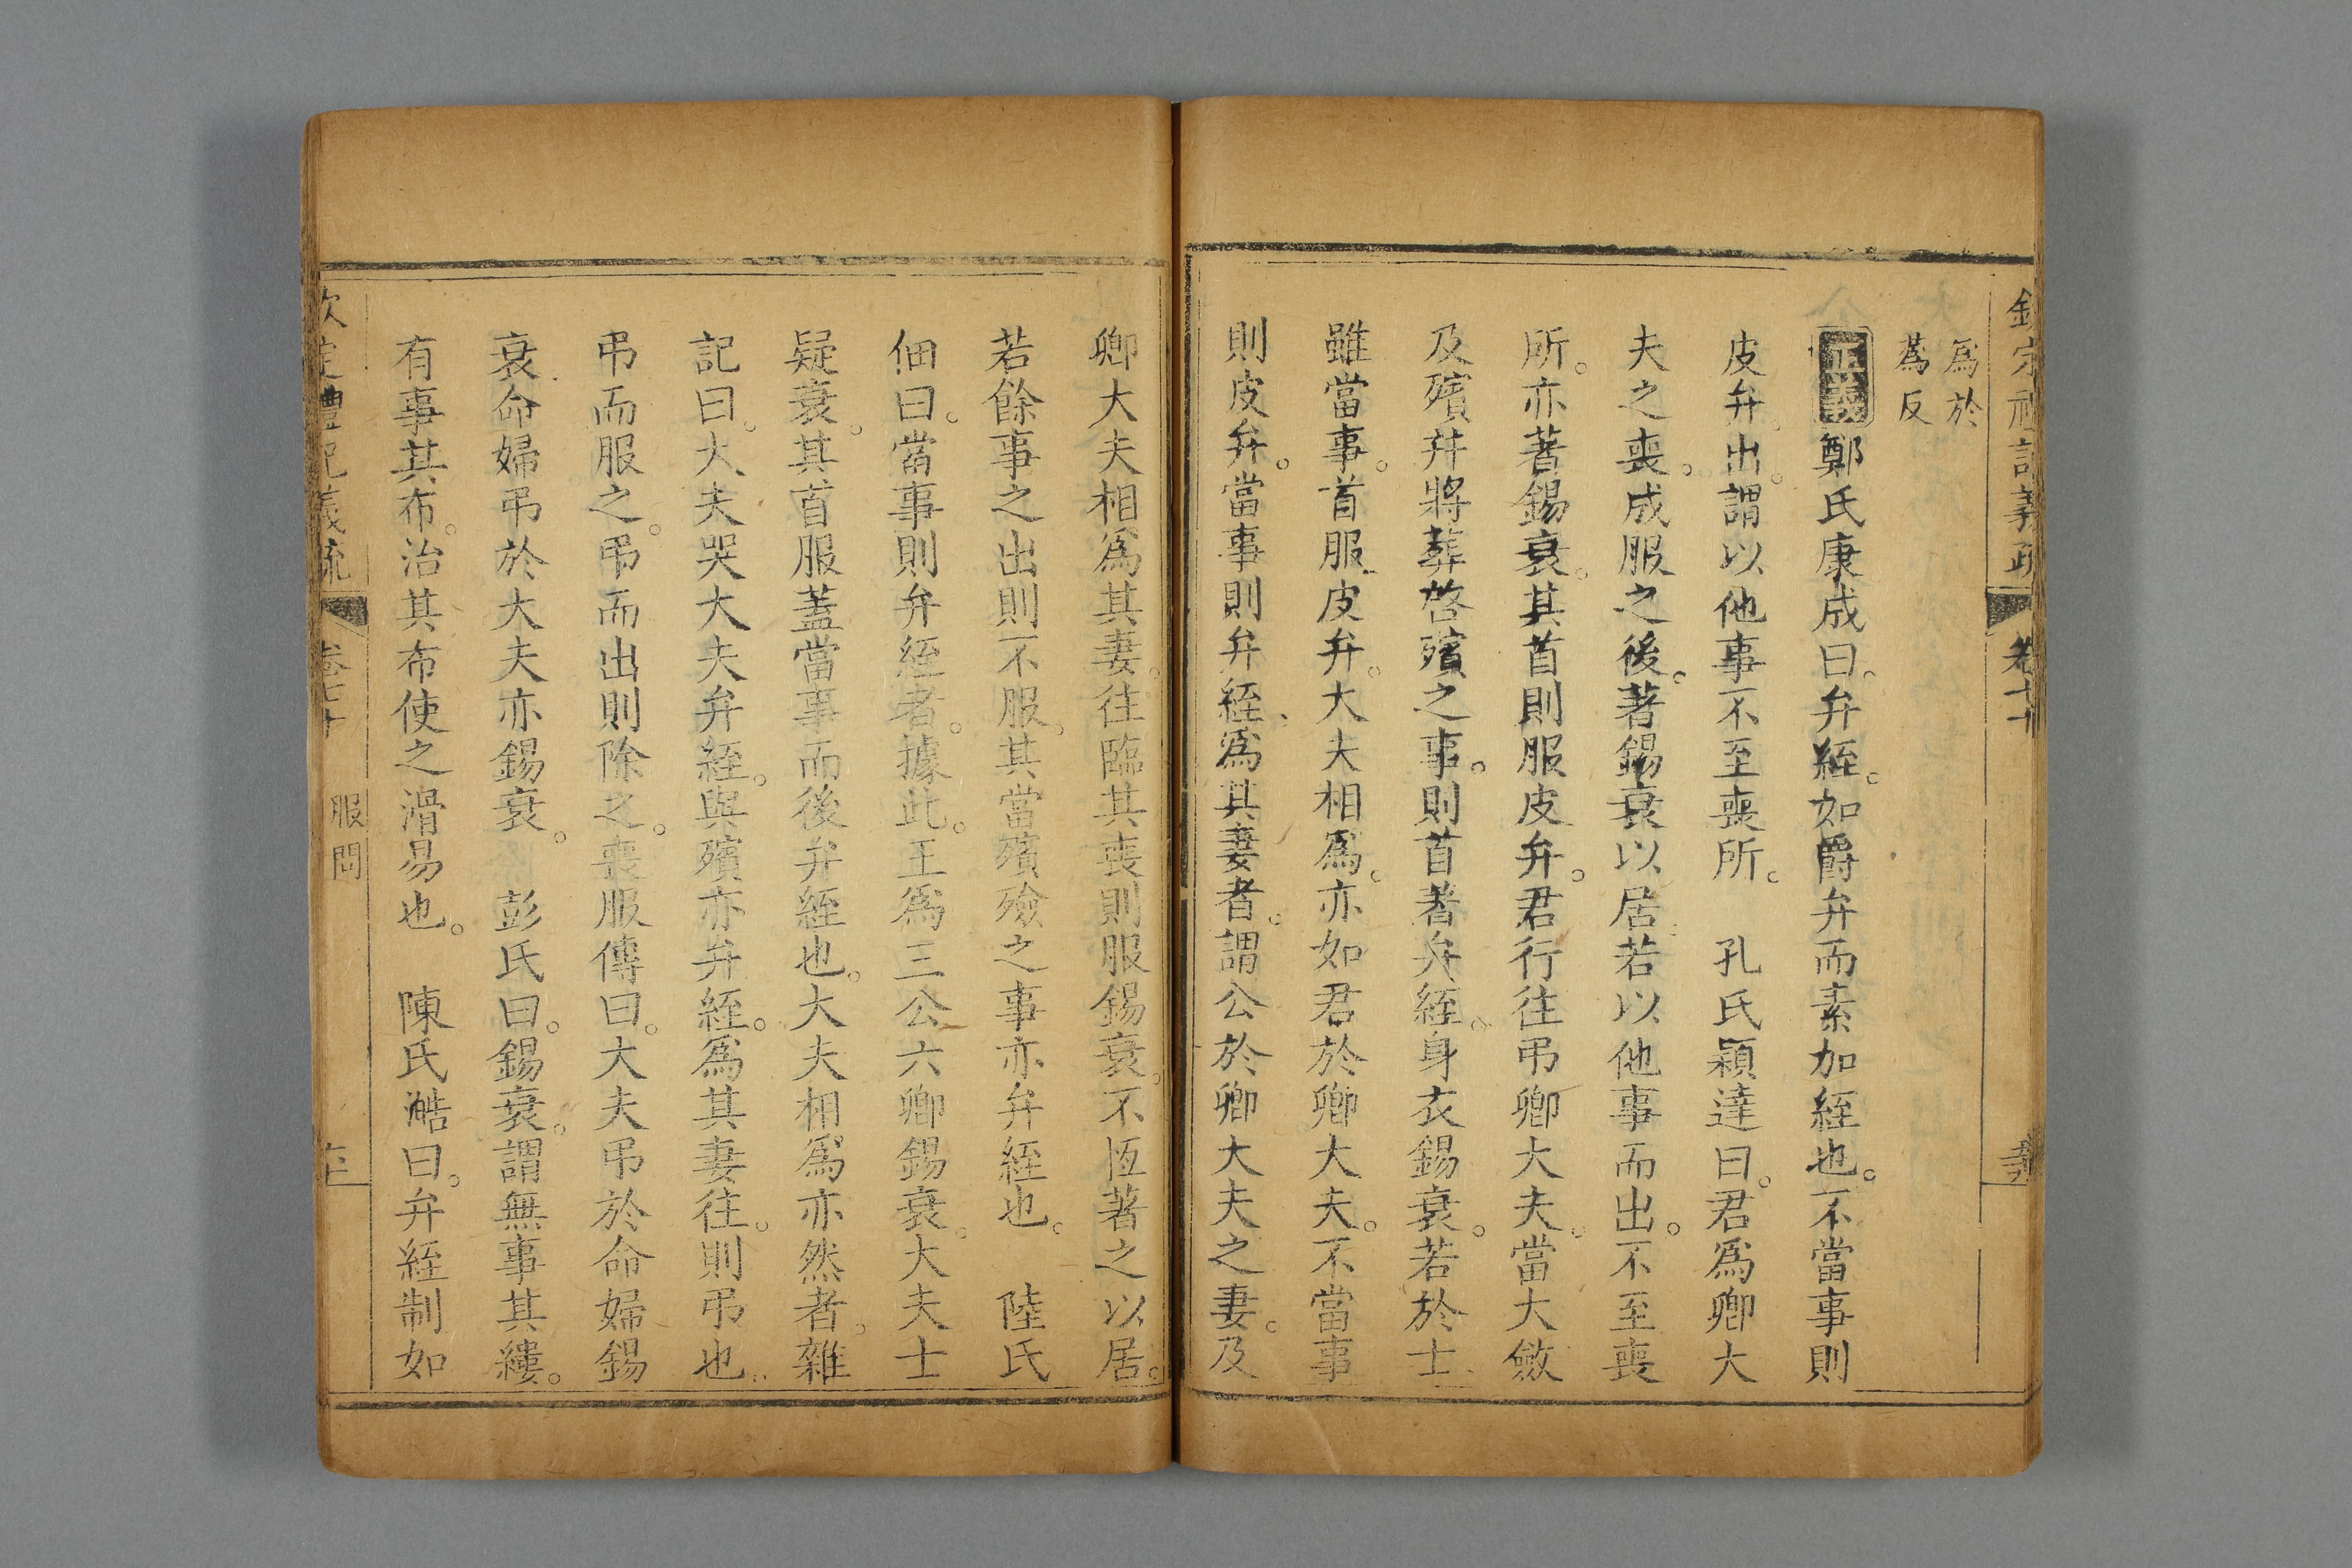 欽定禮記義疏 卷七十
爲於
蒍反
正義鄭氏康成曰。弁絰。如爵弁而素加絰也。不當事則
皮弁。出。謂以他事不至喪所。　孔氏穎達曰。君爲卿大
夫之喪。成服之後。著錫衰以居。若以他事而出。不至喪
所。亦著錫衰。其首則服皮弁。君行往弔卿大夫。當大斂
及殯幷將葬啓殯之事。則首著弁絰。身衣錫衰。若於士
雖當事。首服皮弁。大夫相爲。亦如君於卿大夫。不當事
則皮弁。當事則弁絰。爲其妻者。謂公於卿大夫之妻。及
卿大夫相爲其妻。往臨其喪則服錫衰。不恆著之以居。
若餘事之出則不服。其當殯殮之事亦弁絰也。　陸氏
佃曰。當事則弁絰者。據此。王爲三公六卿錫衰。大夫士
疑衰。其首服蓋當事而後弁絰也。大夫相爲亦然者。雜
記曰。大夫哭大夫弁絰。與殯亦弁絰。爲其妻往。則弔也。
弔而服之。弔而出則除之。喪服傳曰。大夫弔於命婦錫
衰。命婦弔於大夫亦錫衰。　彭氏曰。錫衰。謂無事其縷。
有事其布。治其布使之滑易也。　陳氏澔曰。弁絰制如
欽定禮記義疏 卷七十 服問